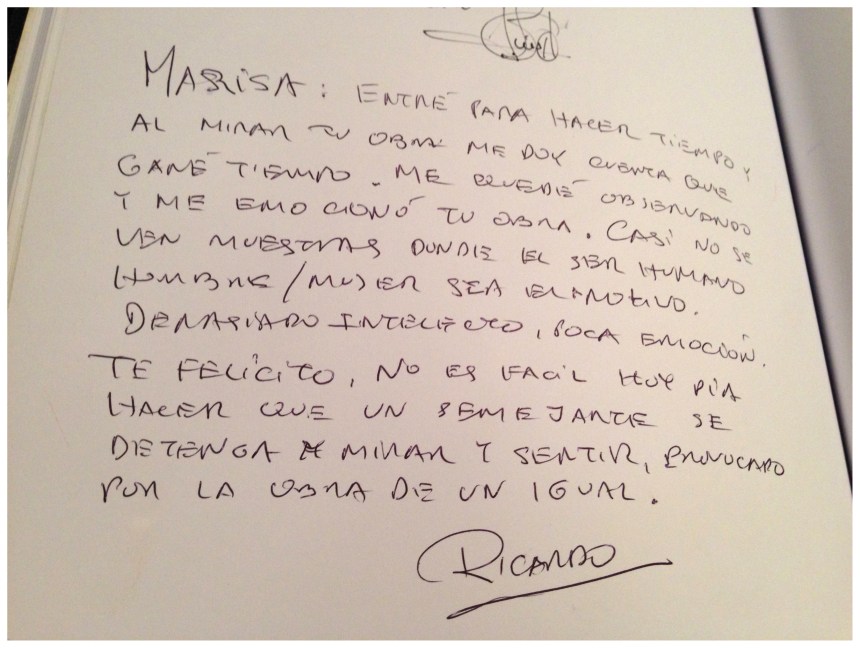 MARISA: ENTRÉ PARA HACER TIEMPO Y
AL MIRAR TU OBRA ME DOY CUENTA QUE
GANÉ TIEMPO. ME QUEDÉ OBSERVANDO
Y ME EMOCIONÓ TU OBRA. CASI NO SE
VEN MUESTRAS DONDE EL SER HUMANO
HOMBRE/MUJER SEA EL MOTIVO.
DEMASIADO INTELECTO, POCA EMOCIÓN.
TE FELICITO, NO ES FACIL HOY DÍA
HACER QUE UN SEMEJANTE SE
DETENGA A MIRAR Y SENTIR, PROVOCADO
POR LA OBRA DE UN IGUAL.
RICARDO